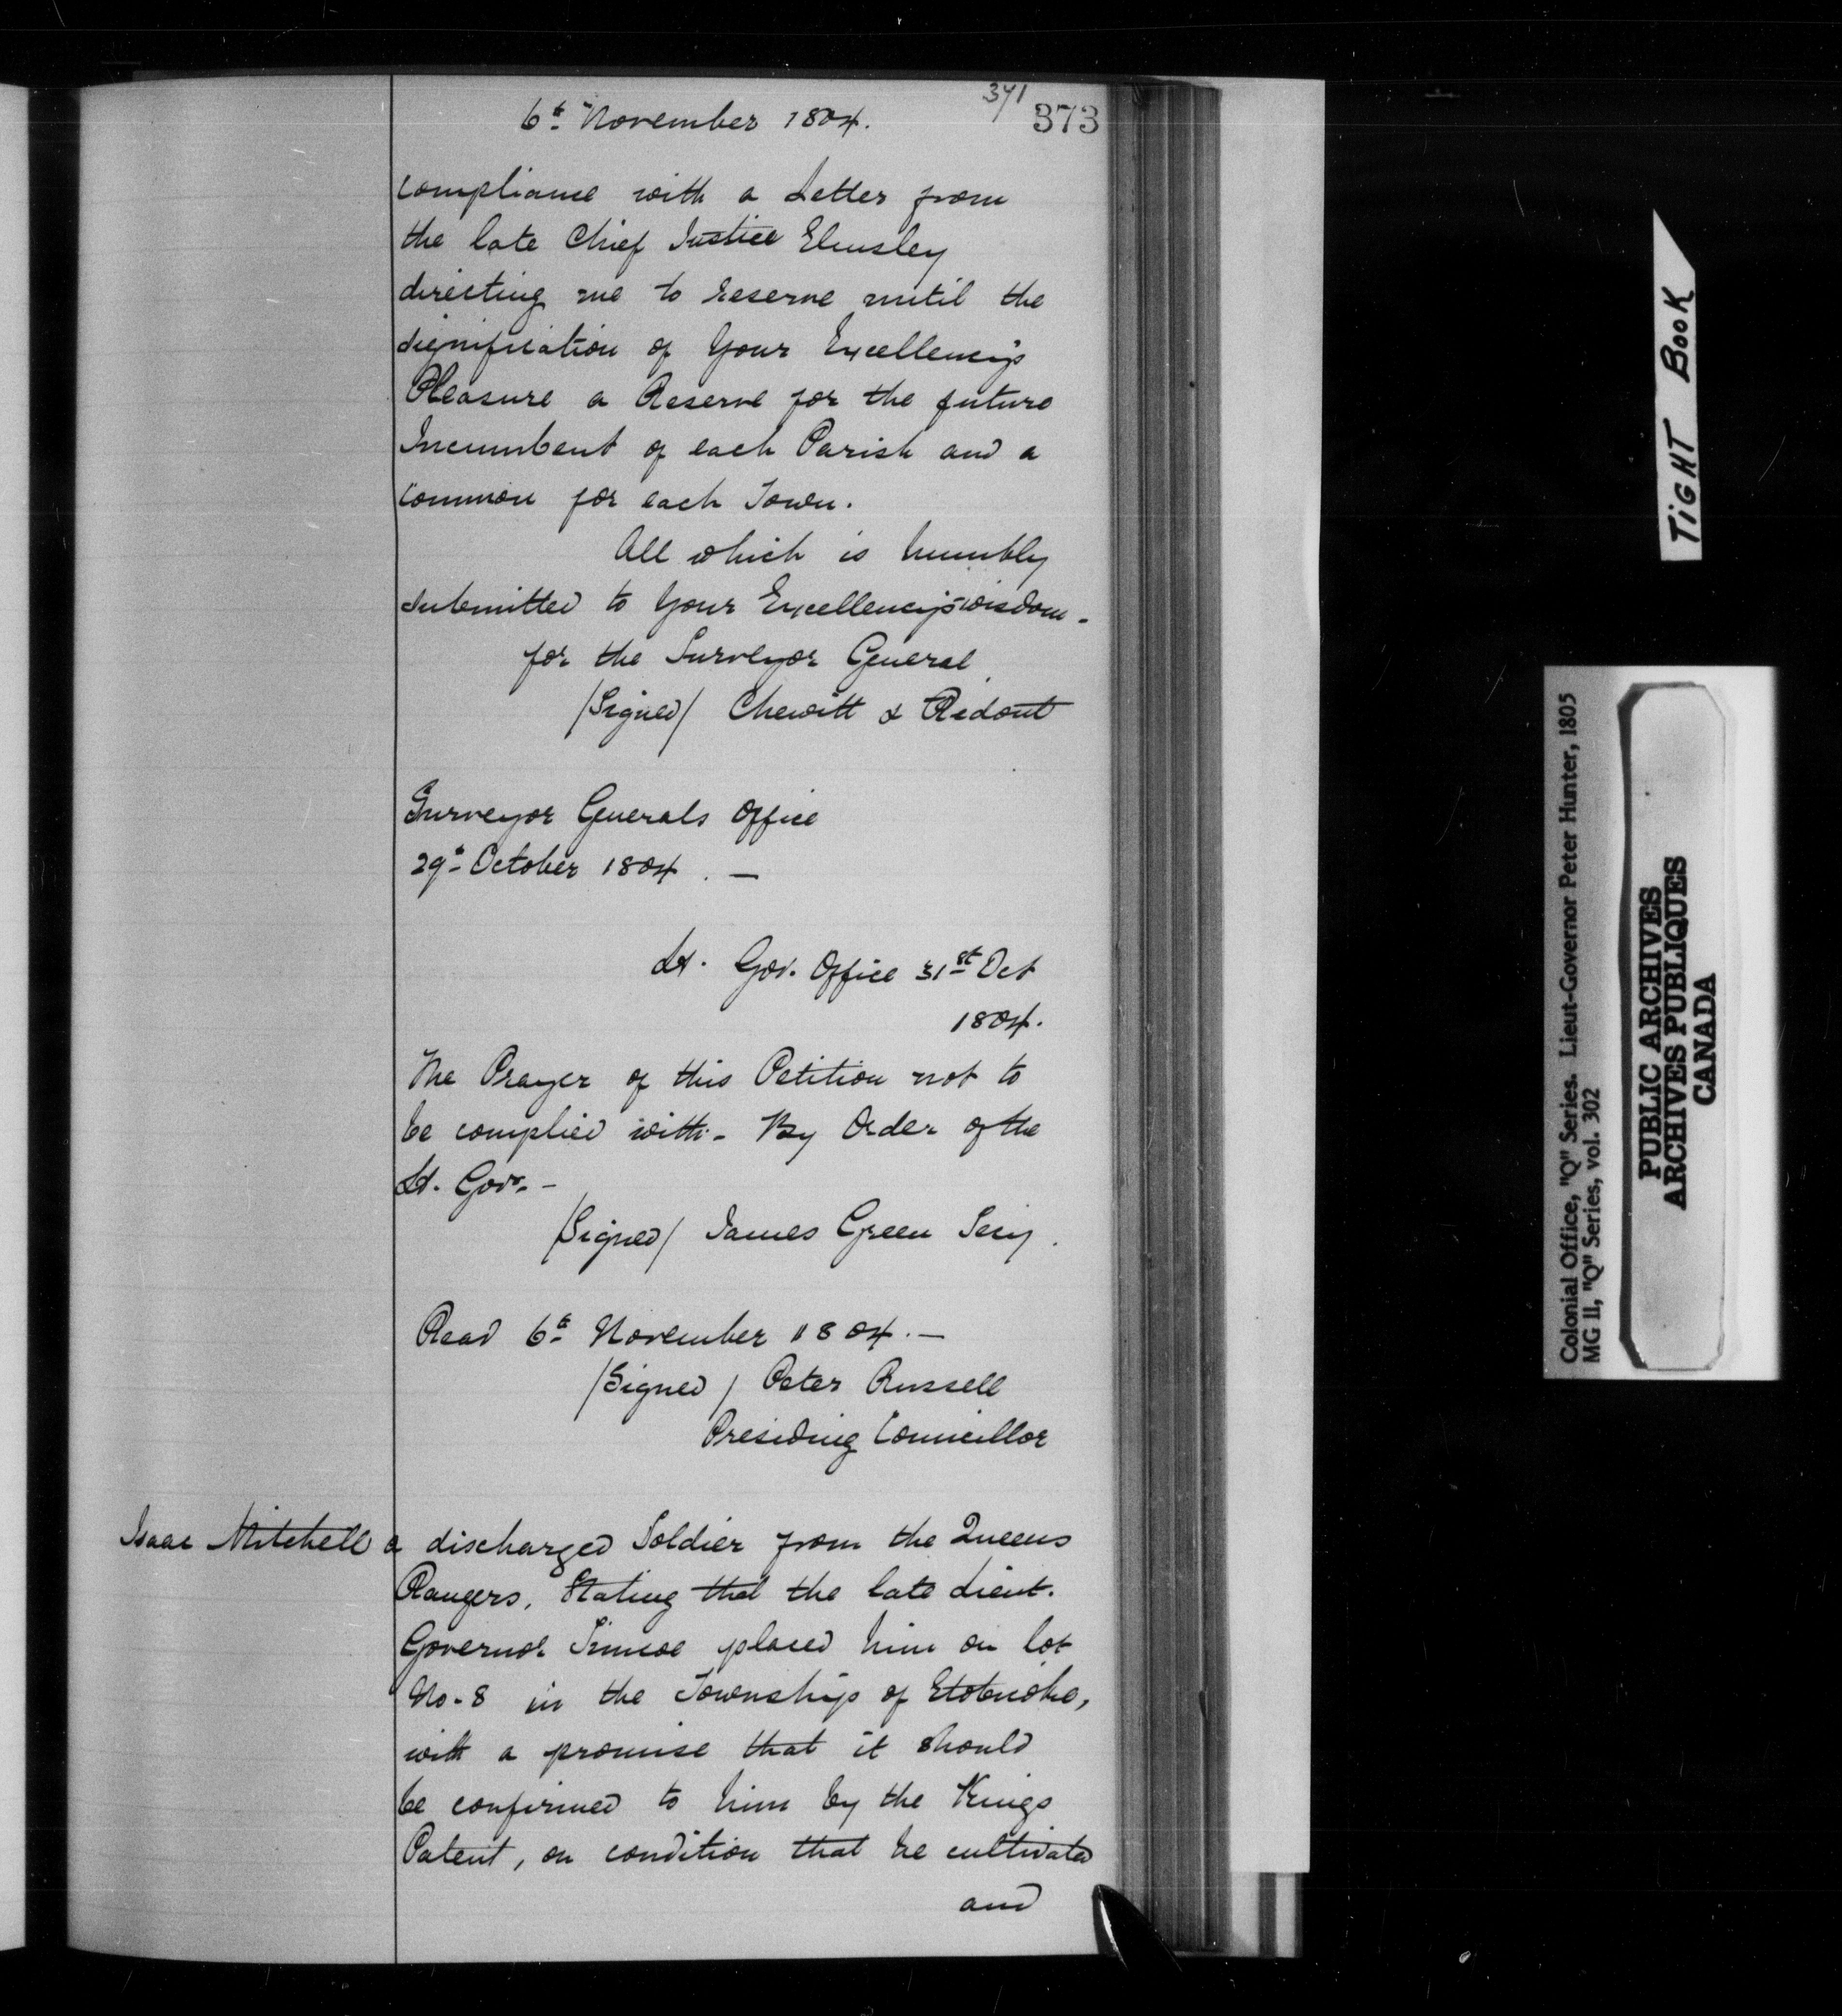 371
6th November 1804.
373
compliance with a Letter from
the late Chief Justice Elmsley
directing me to reserve until the
signification of Your Excellency's
Pleasure a Reserve for the future
Incumbent of each Parish and a
Common for each Town.
All which is humbly
submitted to Your Excellency's wisdom.
for the Surveyor General
/Signed/ Chewitt & Ridout
Surveyor Generals Office
29th October 1804. —
Lt. Gov. Office 31st Oct
1804.
The Prayer of this Petition not to
be complied with - By Order of the
Lt. Govr. -
/Signed/ James Green Secy.
Read 6th November 1804. —
/Signed/ Peter Russell
Presiding Councillor
Isaac Mitchell a discharged Soldier from the Queens
Rangers, Stating that the late Lieut.
Governor Simcoe placed him on lot
No. 8 in the Township of Etobicoke,
with a promise that it should
be confirmed to him by the Kings
Patent, on condition that he cultivated
and
TIGHT BOOK
Colonial Office, "Q" Series. Lieut-Governor Peter Hunter, 1805
MG 11, "Q" Series, vol. 302
PUBLIC ARCHIVES
ARCHIVES PUBLIQUES
CANADA